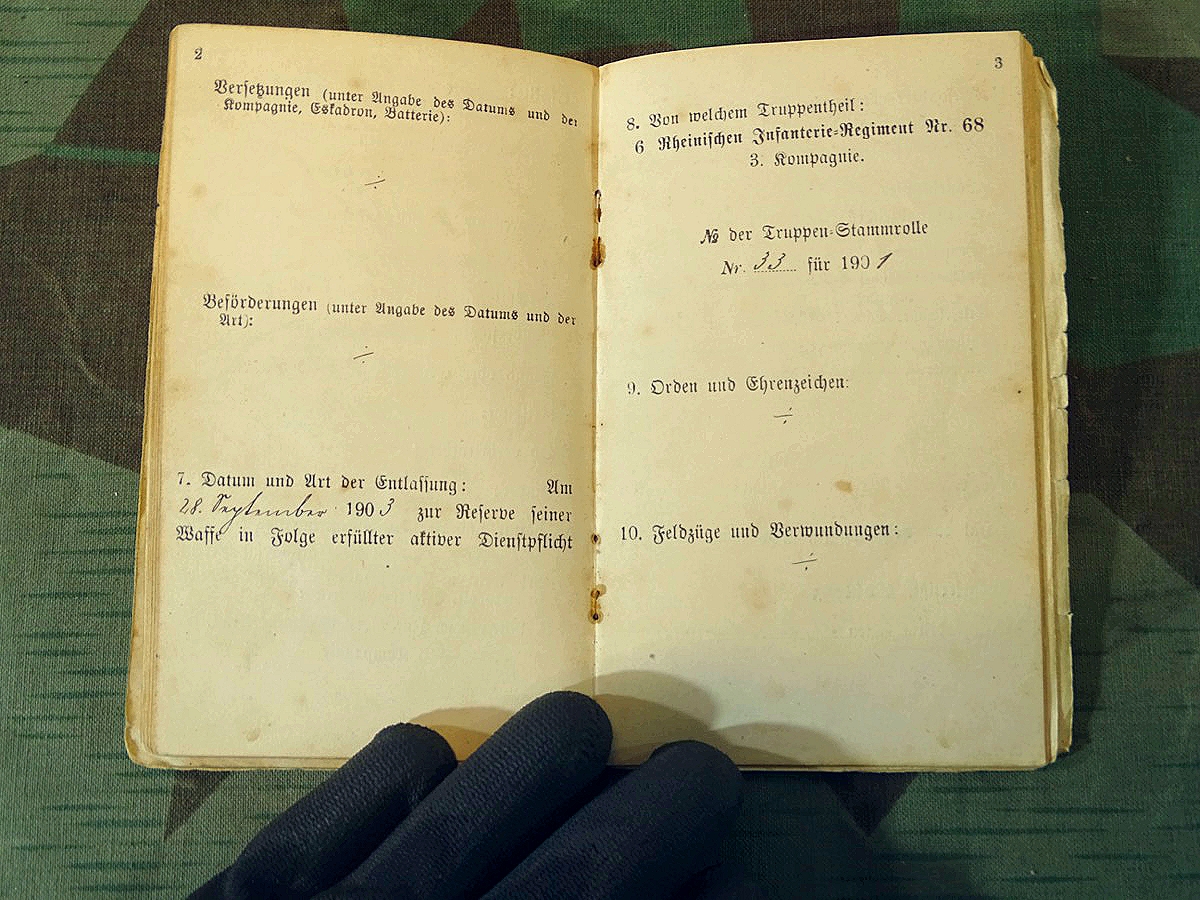 2
Versetzungen (unter Angabe des Datums und der
Kompagnie, Eskadron, Batterie):
÷
Beförderungen (unter Angabe des Datums und der
Art):
÷
7. Datum und Art der Entlassung: Am
28. September 1903 zur Reserve seiner
Waffe in Folge erfüllter aktiver Dienstpflicht
3
8. Von welchem Truppentheil:
6 Rheinischen Infanterie-Regiment Nr. 68
3. Kompagnie.
№ der Truppen-Stammrolle
Nr. 33 für 1901
9. Orden und Ehrenzeichen:
÷
10. Feldzüge und Verwundungen:
÷